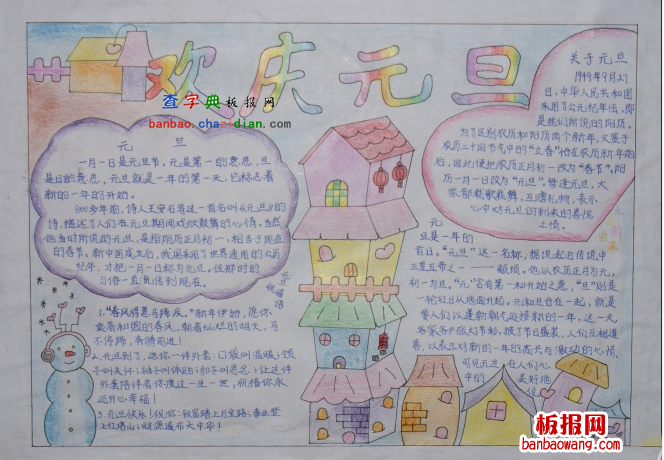 欢庆元旦
查字典板报网
banbao.chazidian.com
元 旦
一月一日是元旦节，元是第一的意思，旦
是日的意思，元旦就是一年的第一天，它标志着
新的一年的开始。
800多年前，诗人王安石写过一首名叫《元旦》的
诗，描述了人们在元旦期间欢欣鼓舞的心情，当然
他当时所说的元旦，是指阴历正月初一，相当于现在
的春节，新中国成立后，我国采用了世界通用的公历
纪年，才把一月一日称为元旦，但那时的
习俗一直流传到现在。
关于元旦
1949年9月27
日，中华人民共和国
采用了公元纪年法，即
是我们所说的阳历。
为了区别农历和阳历两个新年，又鉴于
农历二十四节气中的“立春”恰在农历新年前
后，因此便把农历正月初一改为“春节”，阳
历一月一日改为“元旦”。每逢元旦，大
家都载歌载舞，互赠礼物，表示
心中对元旦的到来的喜悦
之情。
元
旦是一年的
首日。“元旦”这一名称，据说起自传说中
三皇五帝之一——颛顼。他以农历正月为元，
初一为旦。“元”含有第一和开始之意，“旦”则是
一轮红日从地面升起，元和旦合在一起，就是
要人们以蓬勃朝气迎接新的一年。这一天，
客家各户张灯节彩，披了节日盛装，人们互相道
喜，以表示对新的一年的高兴与激动的心情。
可见元旦在人们心
中的
美好地
位
元旦祝福语
1.“春风得意马蹄疾”新年伊始，愿你
乘着和谐的春风，朝着灿烂的明天，马
不停蹄，奔腾前进！
2.元旦到了，送你一件外套：口袋叫温暖；领
子叫关怀；袖子叫体贴；扣子叫思念；让这件
外套陪伴着你度过一生一世，祝福你永
远开心幸福！
3.元旦快乐！祝你：致富踏上万宝路；事业登
上红塔山；财源遍布大中华！
板报网
www.banbaowang.com